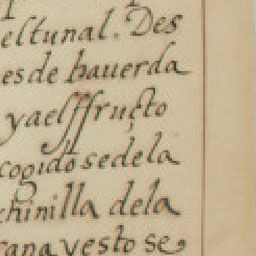 el tunal. Des
es de hauer da
ya el ffructo
cogido se de la
chinilla de la
rana y esto se